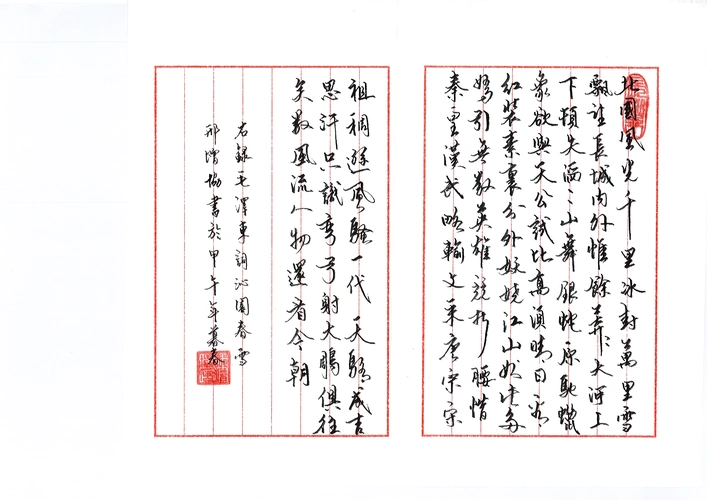 北國風光千里冰封萬里雪
飄望長城內外惟餘莽〻大河上
下頓失滔〻山舞銀蛇原馳蠟
象欲與天公試比高須晴日看
紅裝素裹分外妖嬈江山如此多
嬌引無數英雄競折腰惜
秦皇漢武略輸文采唐宗宋
祖稍遜風騷一代天驕成吉
思汗只識彎弓射大鵰俱往
矣數風流人物還看今朝
右錄毛澤東詞沁園春雪
邢增協書於甲午年暮春